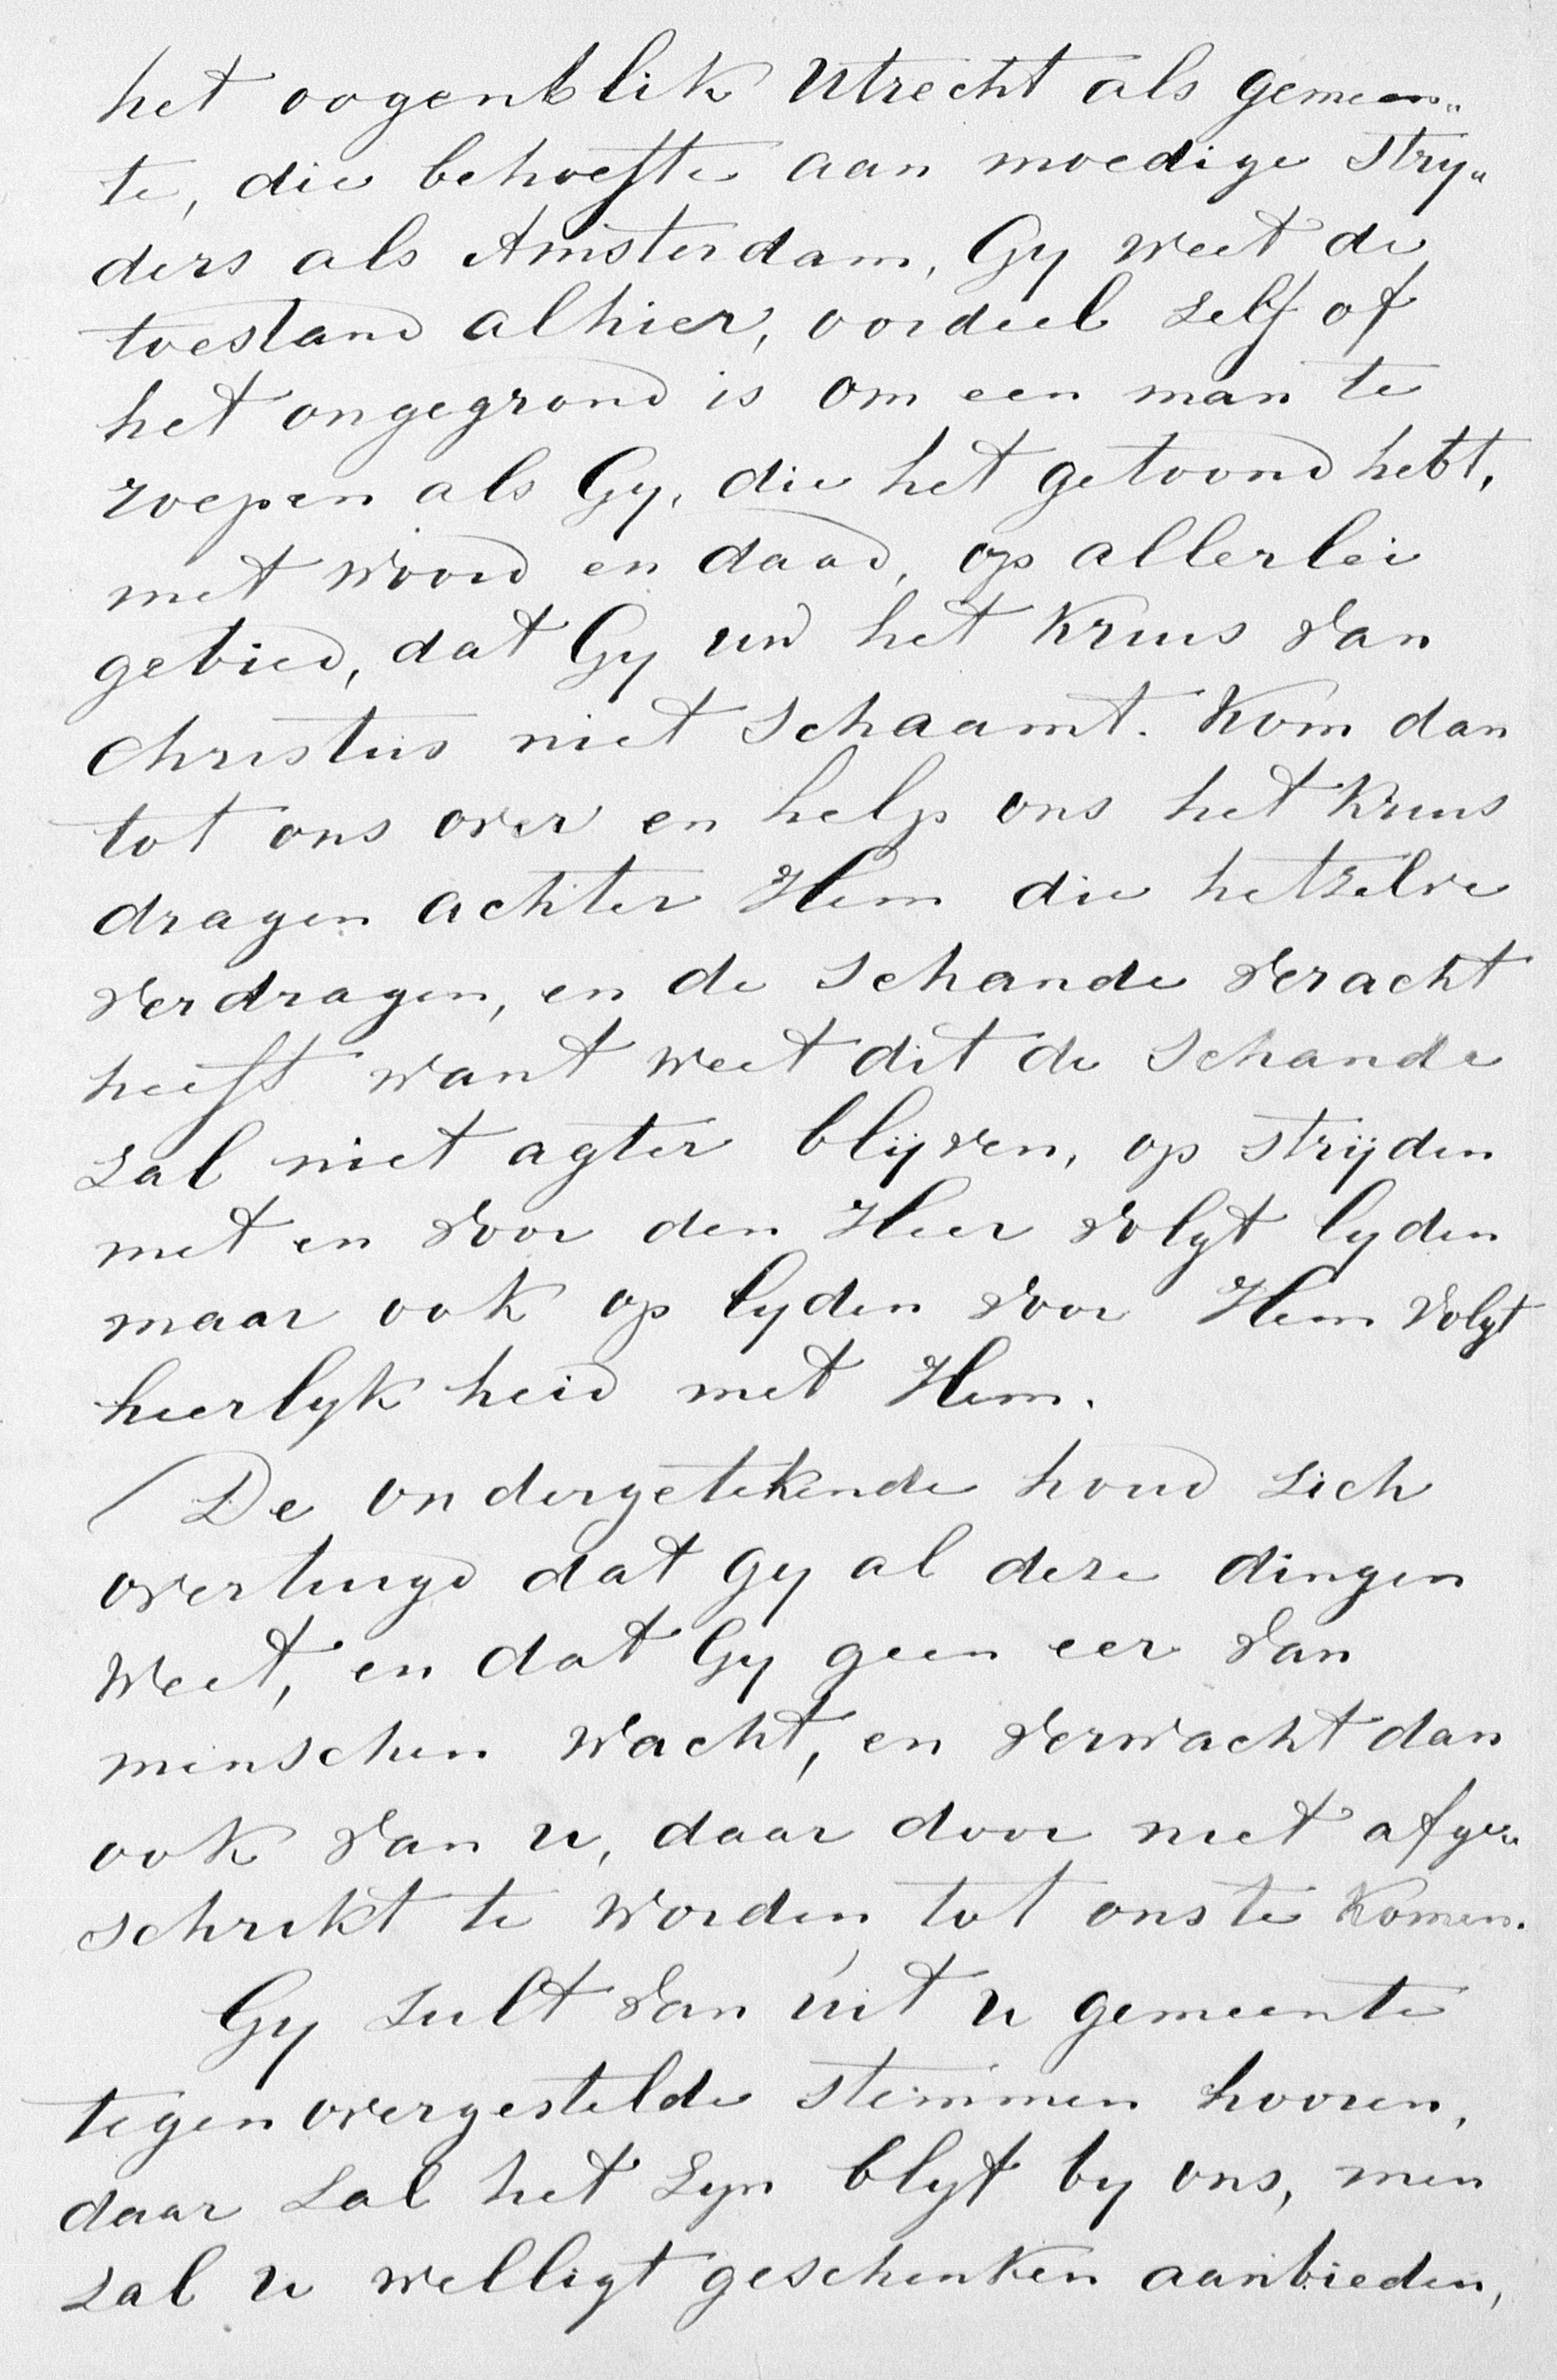 het oogenblik Utrecht als gemeen„
te, die behoefte aan moedige stry„
ders als Amsterdam, Gy weet de
toestand alhier, oordeel self of
het ongegrond is om een man te
roepen als Gy, die het getoond hebt,
met woord en daad, op allerlei
gebied, dat Gy uw het Kruis van
Christus niet schaamt. Kom dan
tot ons over en help ons het Kruis
dragen achter Hem die hetzelve
verdragen, en de schande veracht
heeft want weet dit de schande
sal niet agter blijven, op strijden
met en voor den Heer volgt lyden
maar ook op lyden voor Hem volgt
heerlykheid met Hem.
De ondergetekende houd sich
overtuigd dat gy al deze dingen
weet, en dat Gy geen eer van
menschen wacht, en verwacht dan
ook van u, daar door niet afge„
schrikt te worden, tot ons te Komen.
Gy sult van uit u gemeente
tegenovergestelde stemmen hooren,
daar sal het syn blyf by ons, men
sal u welligt geschenken aanbieden,